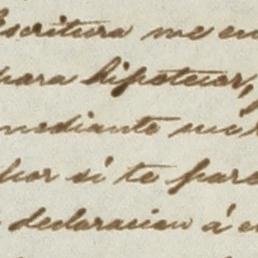 Escritura me en
para hipotecar,
mediante mi
por si te pare
declaracion á e